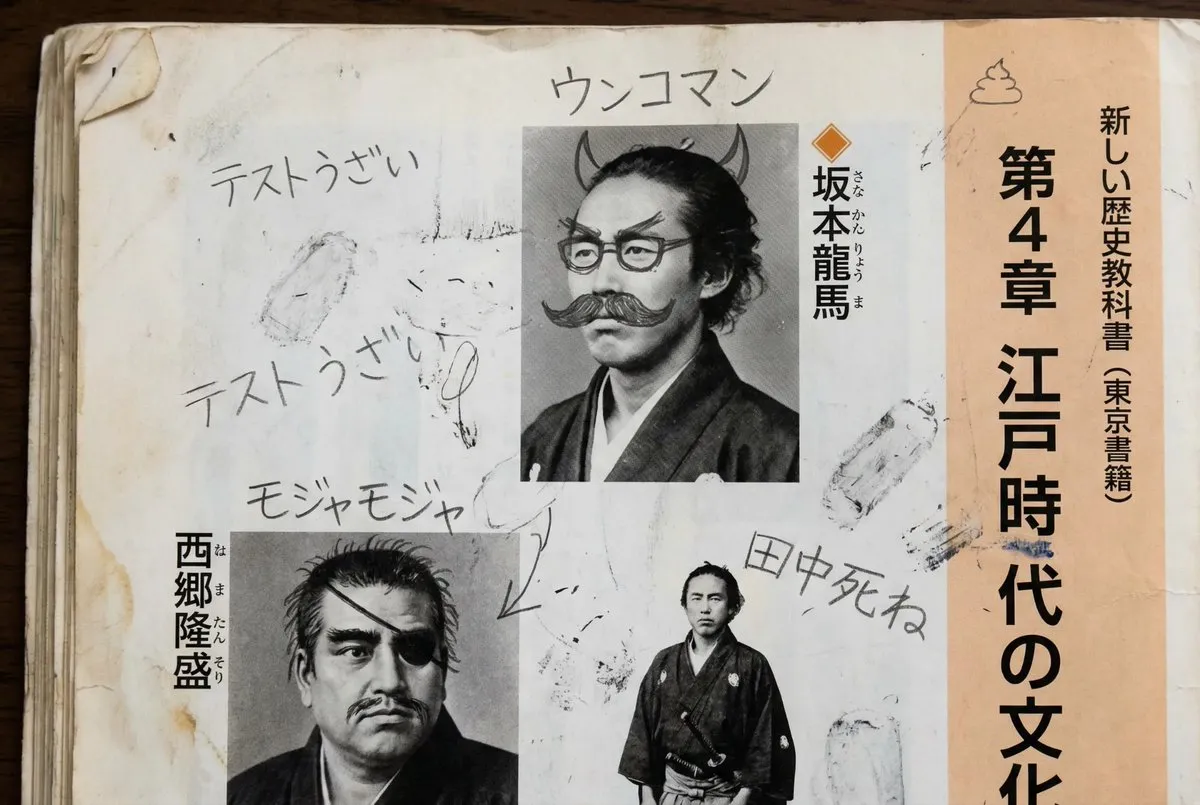 新しい歴史教科書（東京書籍）
第4章 江戸時代の文化
ウンコマン
坂本龍馬
さな かん りょう ま
テストうざい
テストうざい
モジャモジャ
西郷隆盛
はま たん そり
田中死ね